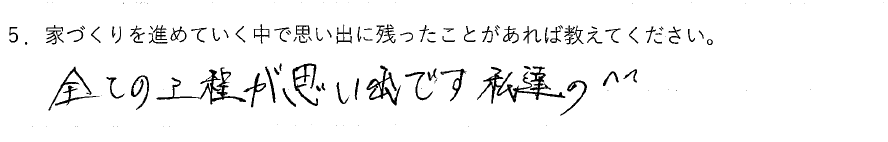 5. 家づくりを進めていく中で思い出に残ったことがあれば教えてください。
全ての工程が思い出です私達の^^